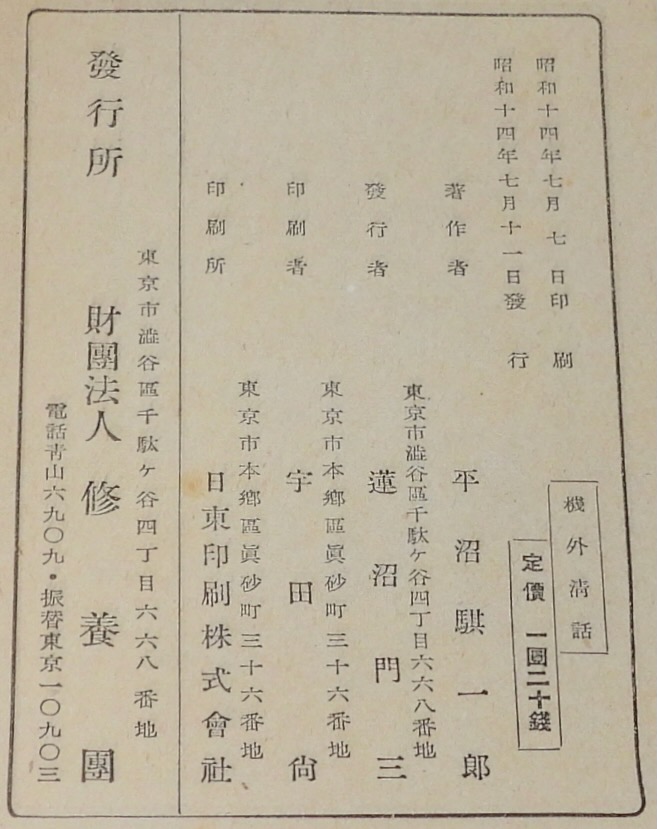 昭和十四年七月七日印刷
昭和十四年七月十一日發行
機外清話
定價 一圓二十錢
著作者 平沼騏一郎
東京市澁谷區千駄ケ谷四丁目六六八番地
發行者 蓮沼門三
東京市本郷區眞砂町三十六番地
印刷者 宇田尙
東京市本郷區眞砂町三十六番地
印刷所 日東印刷株式會社
東京市澁谷區千駄ケ谷四丁目六六八番地
發行所 財團法人 修養團
電話青山六九〇九・振替東京一〇九〇三